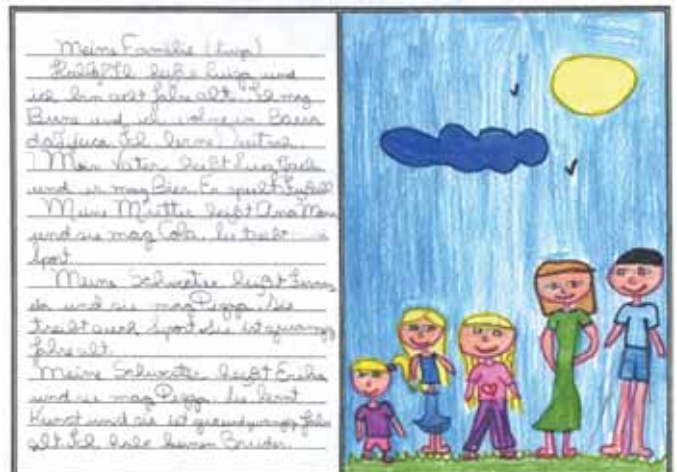 Meine Familie (Luiza)
Hallo! Ich heiße Luiza und
ich bin acht Jahre alt. Ich mag
und ich wohne in Barra
da Tijuca. Ich lerne Deutsch.
Mein Vater heißt Luiz
und er mag Bier. Er spielt Fußball
Meine Mutter heißt Ana
und sie mag Cola. Sie treibt
Sport.
Meine Schwester heißt
da und sie mag Pizza. Sie
treibt auch Sport. Sie ist zwanzig
Jahre alt.
Meine Schwester heißt Erika
und sie mag Pizza. Sie lernt
Kunst und sie ist Jahre
alt. Ich habe keinen Bruder.